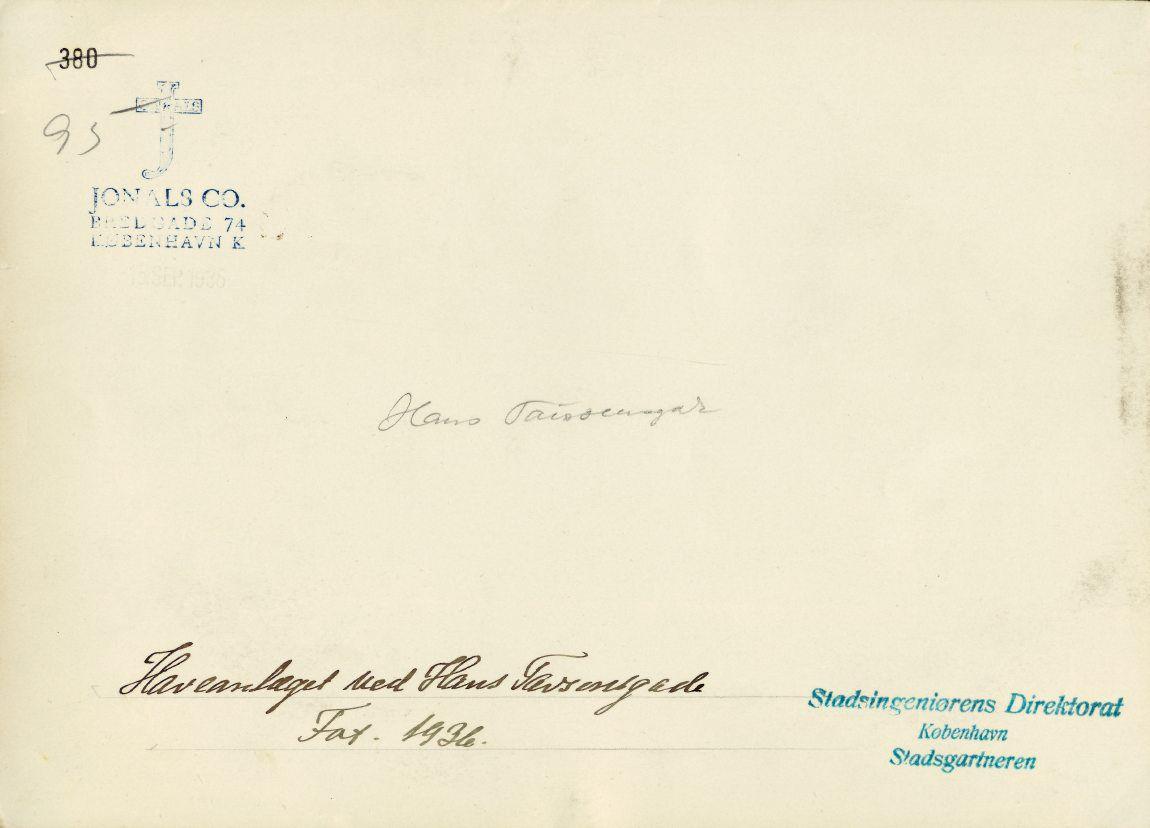 380
95
JONALS
JONALS CO.
BREDGADE 74
KØBENHAVN K
SEP. 1936
Hans Taussensgad
Haveanlæget ved Hans Tavsensgade
Fot. 1936.
Stadsingeniørens Direktorat
København
Stadsgartneren